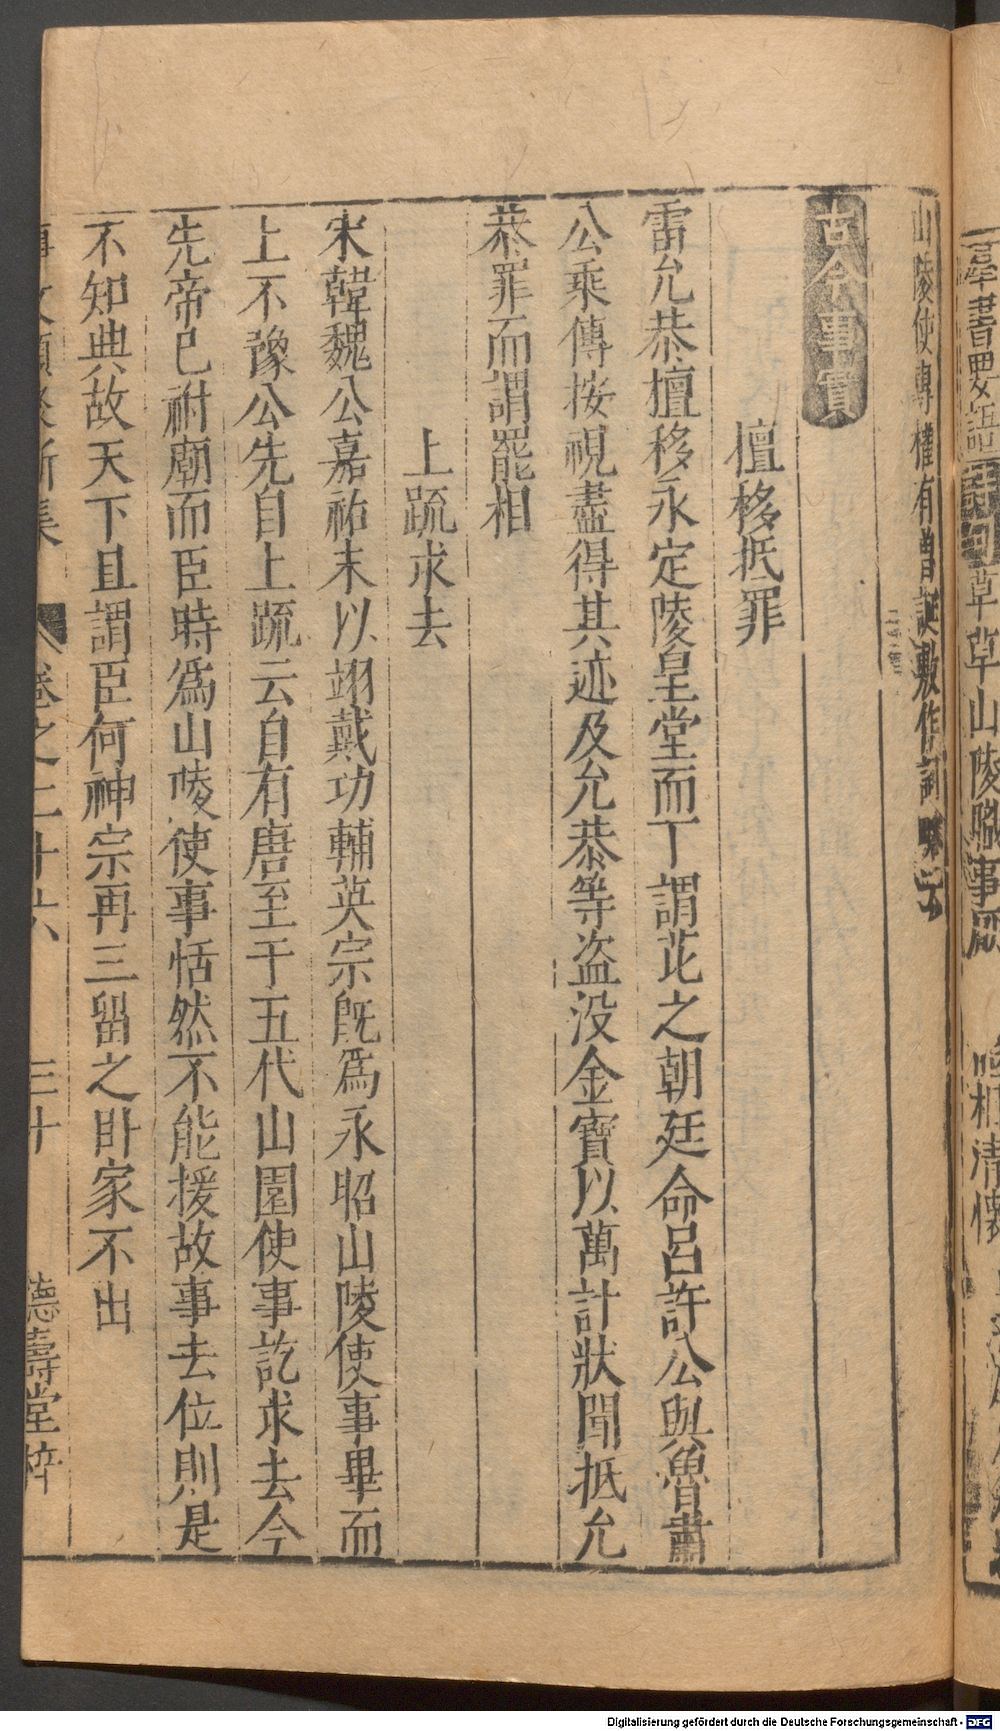 羣書要語
草草山陵職事
相清
山陵使專權有曾誕敷作詞
古今事實
擅移抵罪
雷允恭擅移永定陵皇堂而丁謂芘之朝廷命呂許公與魯肅
公乘傳按視盡得其迹及允恭等盜没金寶以萬計狀聞抵允
恭罪而謂罷相
上䟽求去
宋韓魏公嘉祐末以翊戴功輔英宗旣爲永昭山陵使事畢而
上不豫公先自上䟽云自有唐至于五代山園使事訖求去今
先帝已祔廟而臣時爲山陵使事恬然不能援故事去位則是
不知典故天下且謂臣何神宗再三留之卧家不出
事文類聚新集 卷之二十六 三十 德壽堂梓
Digitalisierung gefördert durch die Deutsche Forschungsgemeinschaft - DFG